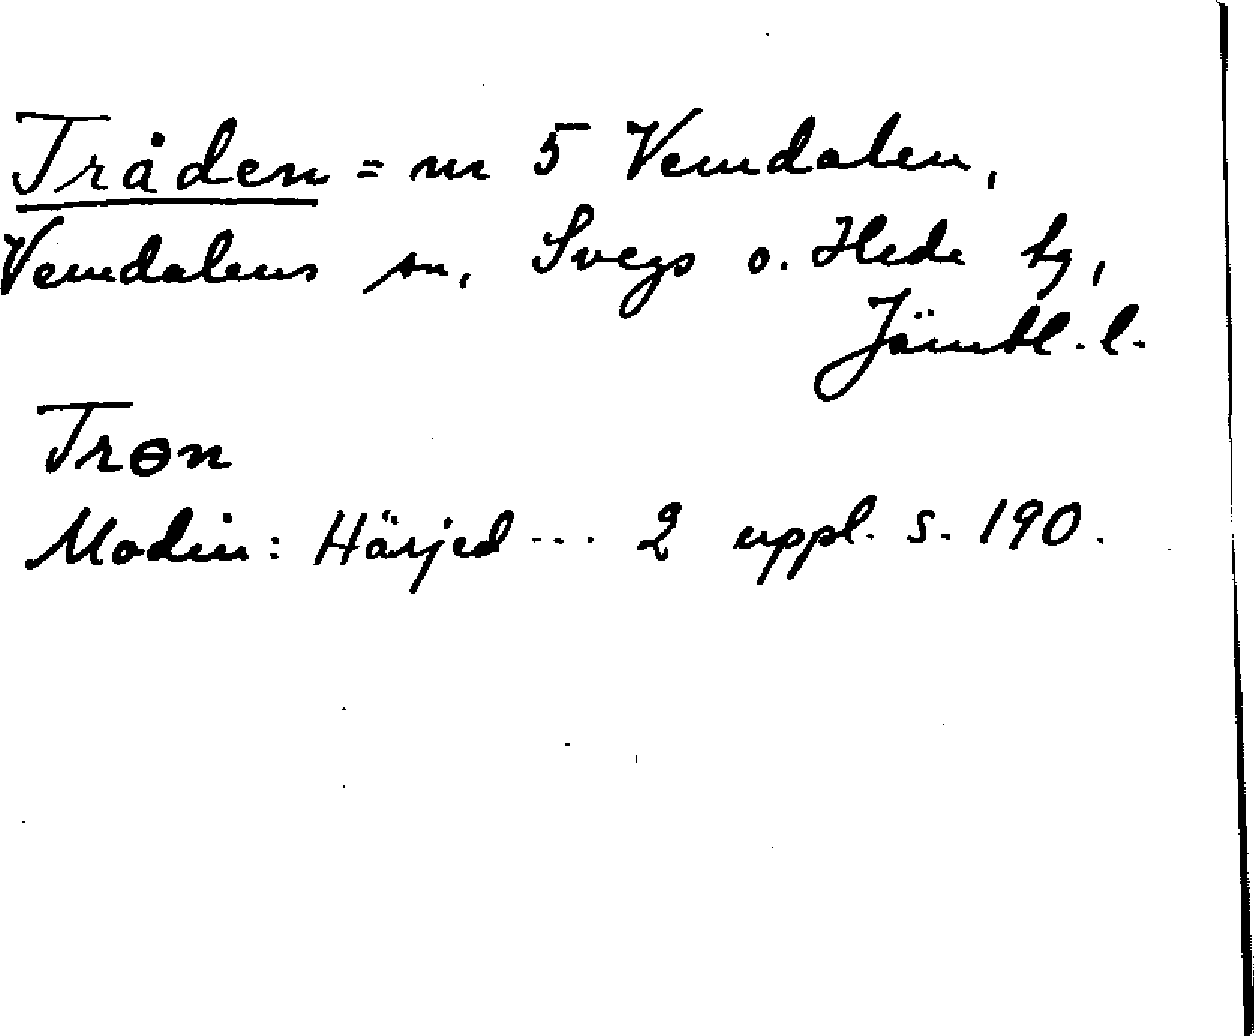 Tråden = nr 5 Vemdalen,
Vemdalens sn, Svegs o. Hede tg,
Jämtl. l.
Trɵn
Modin: Härjed... 2 uppl. s. 190.